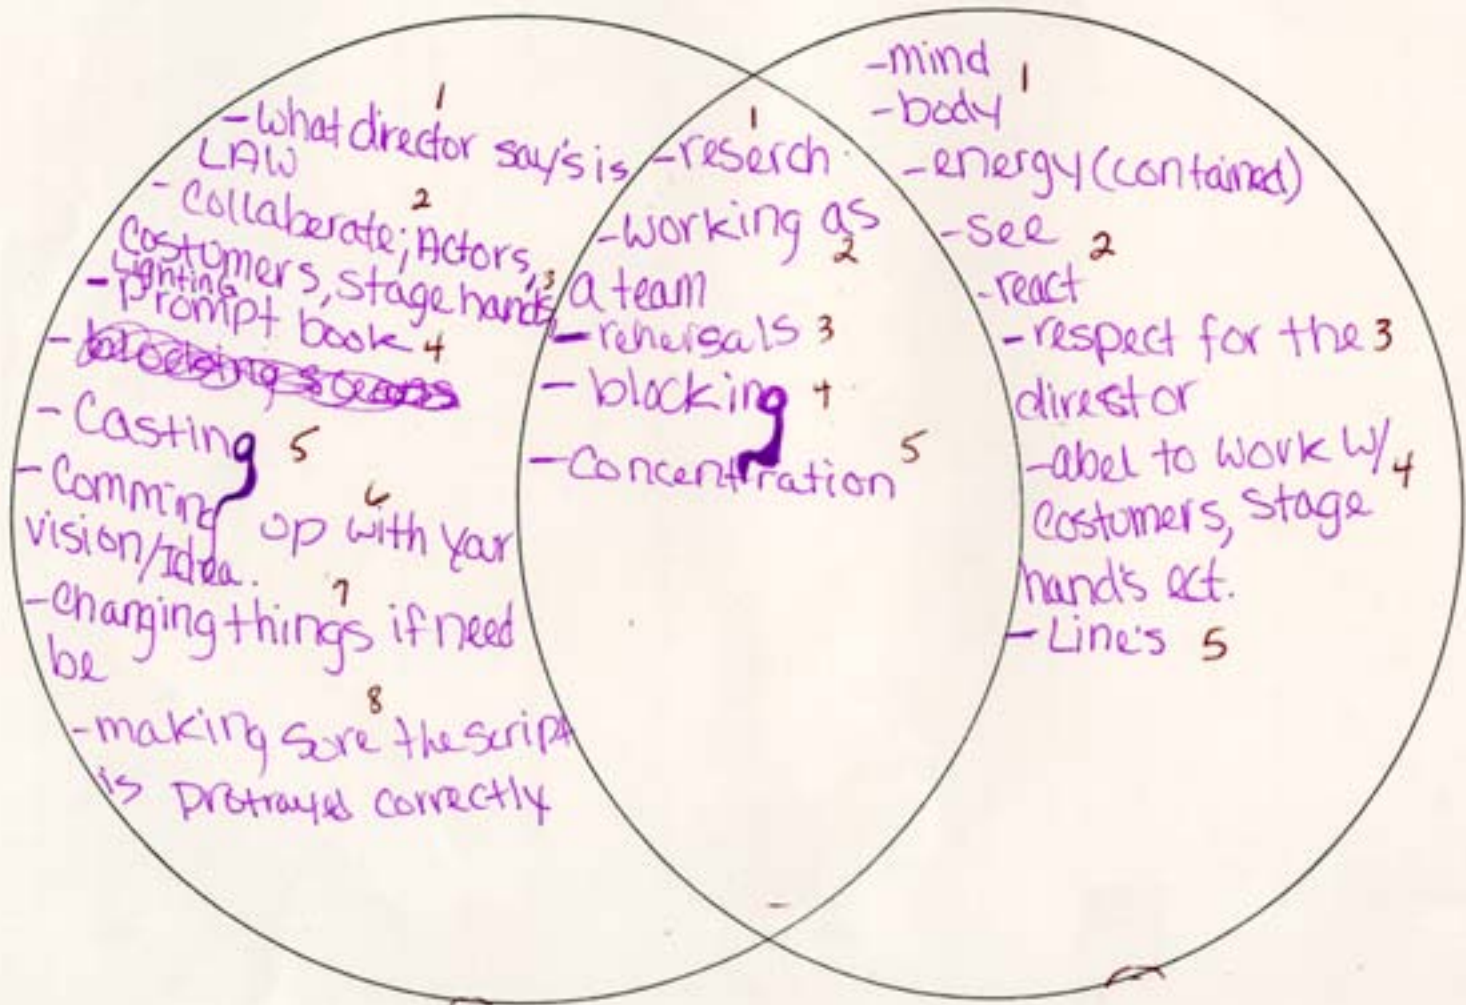 1
-what director say's is
LAW
2
- Collaberate; Actors,
Costumers, Stage hands, 3
Lighting
- Prompt book 4
-
- Casting 5
- Comming op with your 6
vision/Idea.
7
-Changing things if need
be
8
-making sure the script
is protrayed correctly
1
-reserch
-working as
2
a team
-rehersals 3
- blocking 4
-Concentration 5
-mind 1
-body
-energy (contained)
-see 2
-react
-respect for the 3
direstor
-abel to work w/ 4
Costumers, Stage
hand's ect.
-Line's 5